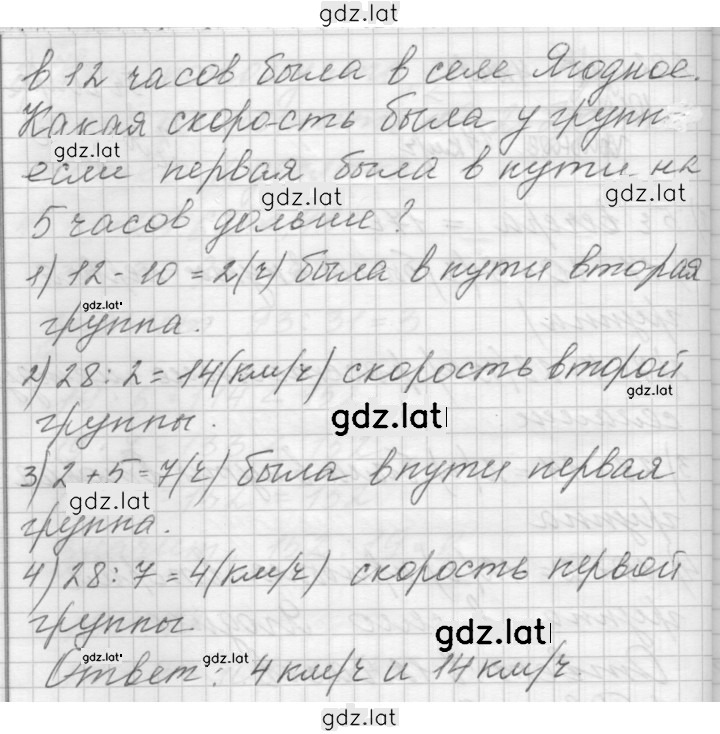 gdz.lat
в 12 часов была в селе Ягодное.
Какая скорость была у групп
gdz.lat
если первая была в пути на
gdz.lat
gdz.lat
5 часов дольше?
1) 12 - 10 = 2(ч) была в пути вторая
gdz.lat
группа.
2) 28 : 2 = 14(км/ч) скорость второй
gdz.lat
группы.
gdz.lat
3) 2 + 5 = 7(ч) была в пути первая
gdz.lat
группа.
4) 28 : 7 = 4(км/ч) скорость первой
группы
gdz.lat
gdz.lat
gdz.lat
Ответ: 4 км/ч и 14 км/ч.
gdz.lat